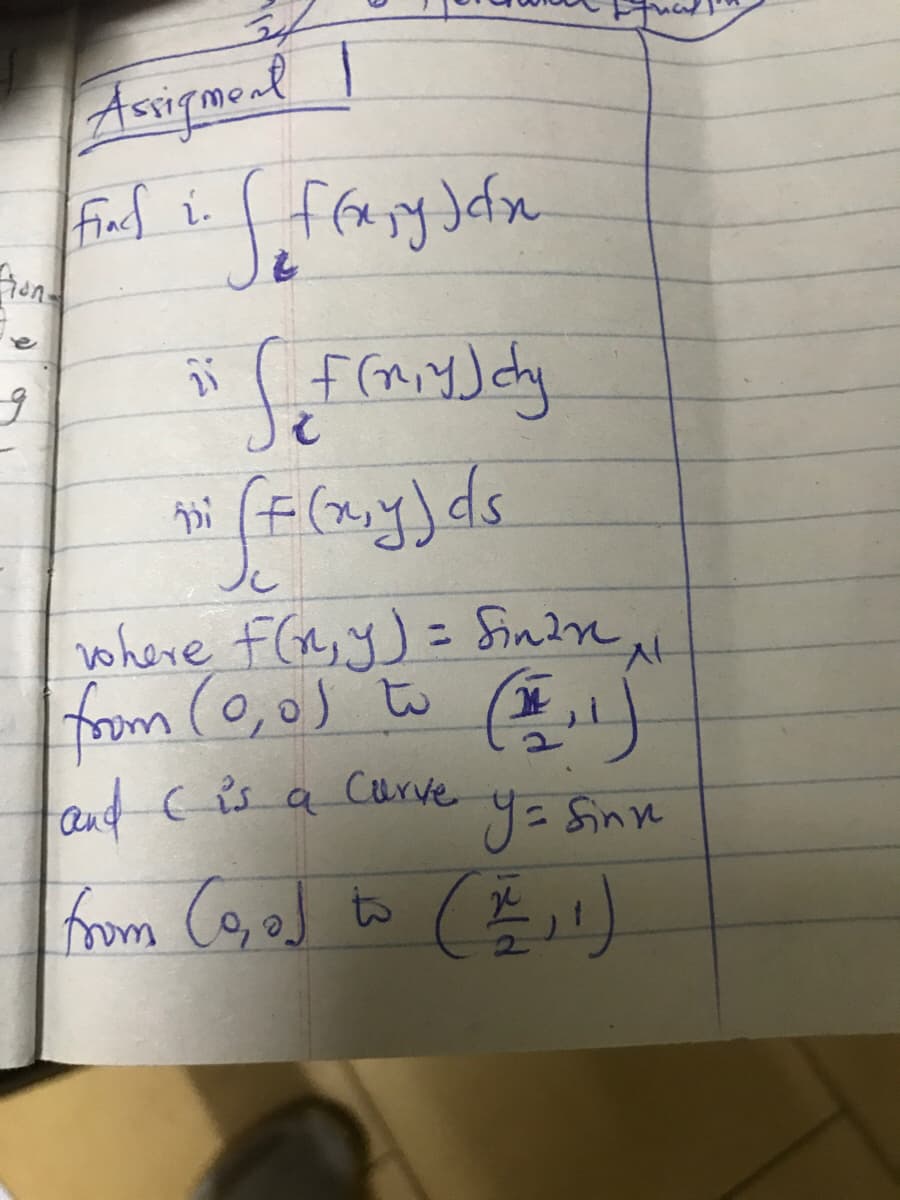 Assigment 1
Find i. ∫c f(x,y)dx
ii ∫c f(x,y)dy
iii ∫c F(x,y)ds
tion-
e
g
where F(x,y) = Sin2x
from (0,0) to (π/2,1)
and C is a curve y = Sinx
from (0,0) to (π/2,1)